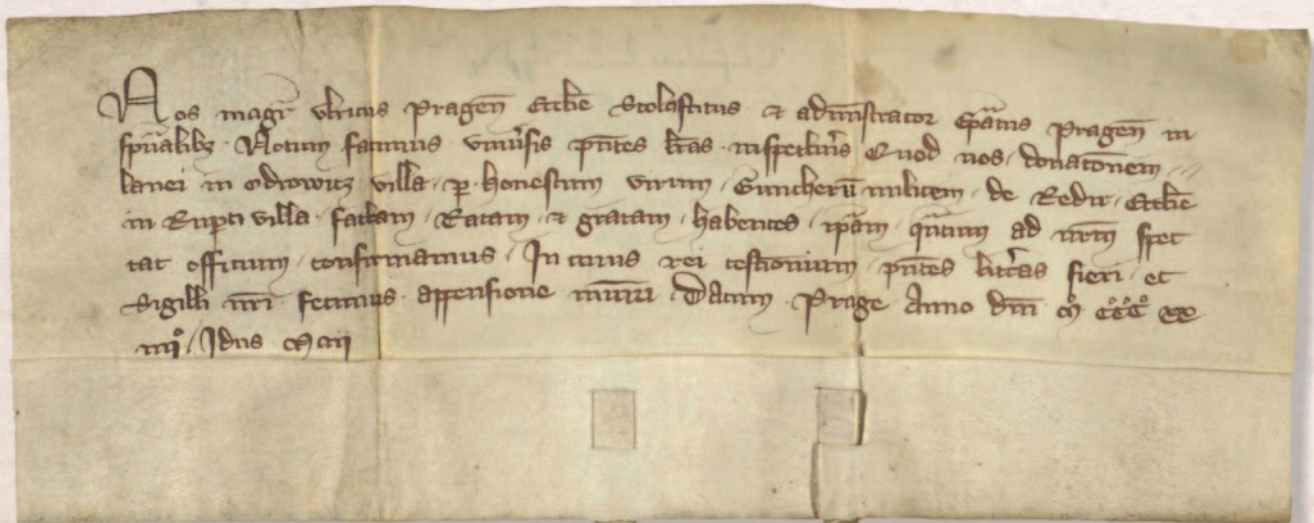 Nos magr̄ vlricus Pragen̄ Eccl̄ie Scolasticus et adm̄inistrator Ep̄atus Pragen̄ in
sp̄ualibꝫ . Notum facimus vniūsis p̄ntes l̄ras inspectur̄is Quod nos donatōnem
lanei in Odrowicz villa p̲ honestum virum Guntherū militem de Redir Eccl̄ie
in Rupti villa factam Ratam et gratam habentes ip̄am q̄ntum ad nr̄m spec
tat officium confirmamus / In cuius rei testimonium p̄ntes litt̄as fieri et
Sigilli nr̄i fecimus appensione mūiri . Datum Prage Anno dn̄i Mͦ CͦCͦCͦ xx
iiijͦ / Idus Maij